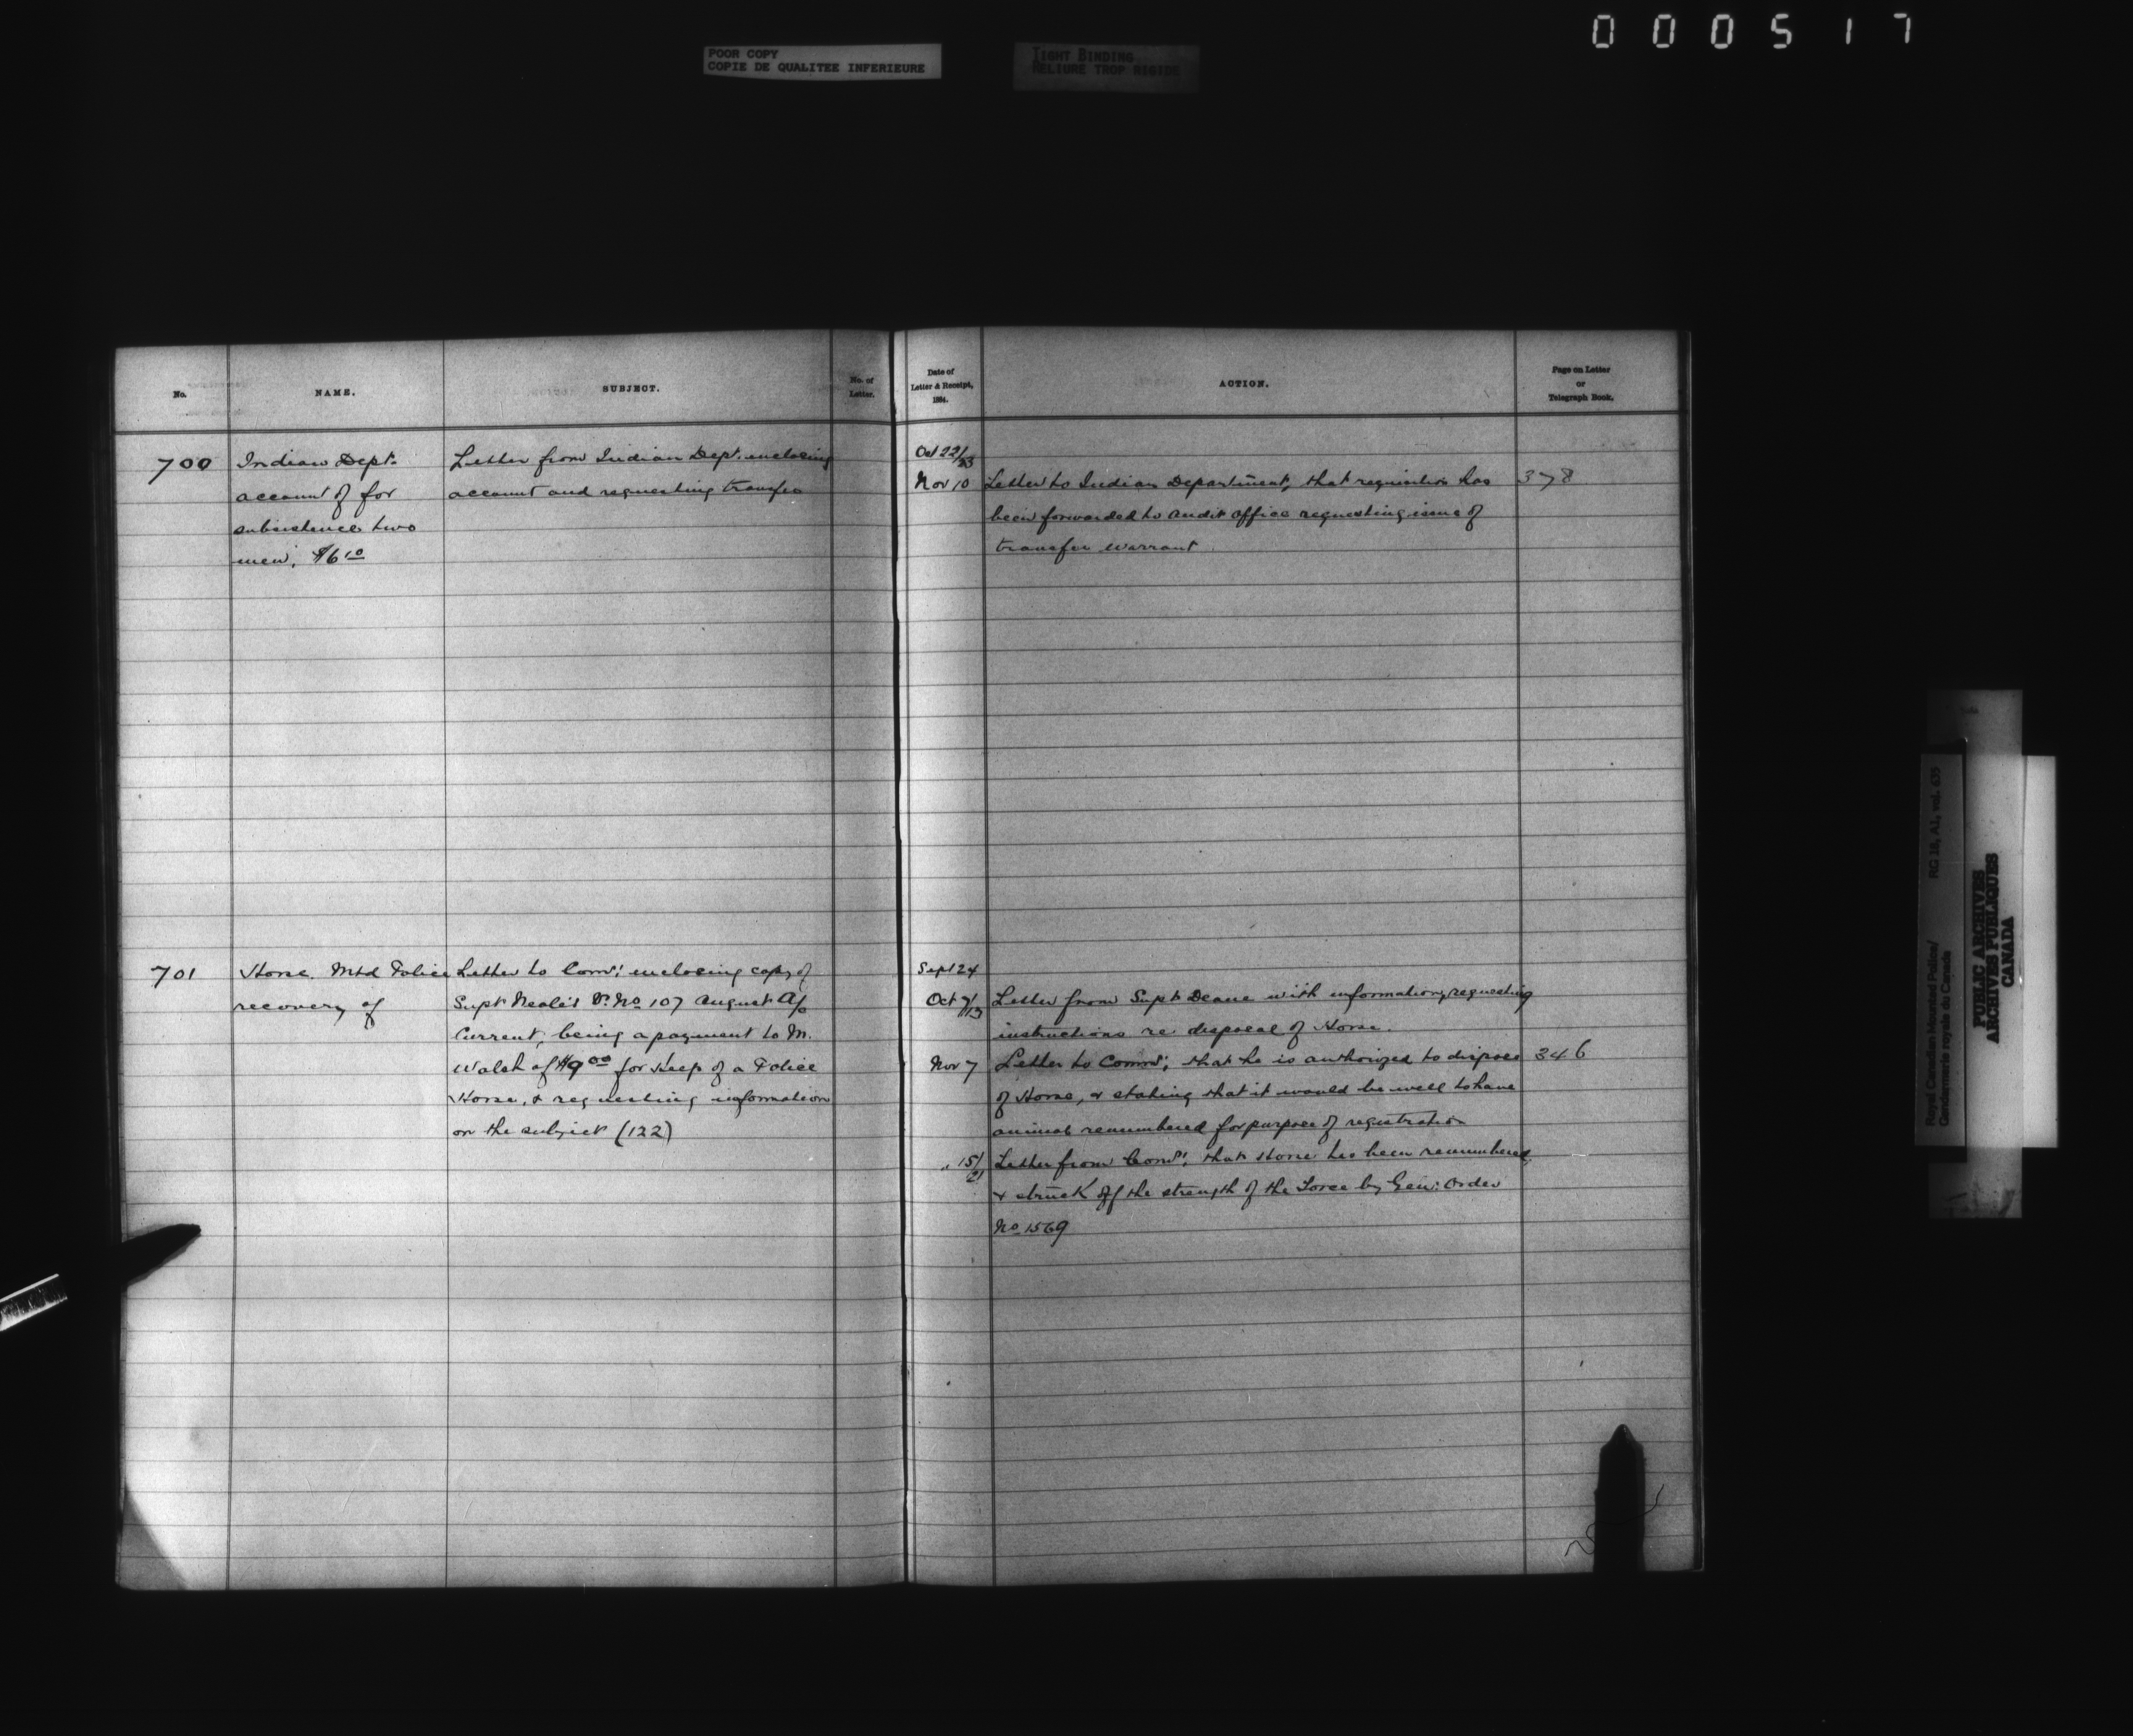 000517
POOR COPY
COPIE DE QUALITEE INFERIEURE
TIGHT BINDING
RELIURE TROP RIGIDE
No.
NAME.
SUBJECT.
No. of
Letter.
Date of
Letter & Receipt,
1884.
ACTION.
Page on Letter
or
Telegraph Book.
700
Indian Dept.
account of for
subsistence two
men, $6 10
Letter from Indian Dept. enclosing
account and requesting transfer
Oct 22/23
Nov 10
Letter to Indian Department, that requisition has
been forwarded to Audit Office requesting issue of
transfer warrant
378
701
Horse. Mtd Police
recovery of
Letter to Comr: enclosing copy of
Supt Neale's Vr. No 107 August A/c
Current, being a payment to M.
Walsh of $9 00 for keep of a Police
Horse, & requesting information
on the subject (122)
Sept 24
Oct 7/13
Letter from Supt Deane with information, requesting
instructions re disposal of Horse.
Nov 7
Letter to Commr; that he is authorized to dispose
of Horse, & stating that it would be well to have
animal renumbered for purpose of registration
346
" 15/21
Letter from Comr; that Horse has been renumbered
& struck off the strength of the Force by Gen: Order
No 1569
Royal Canadian Mounted Police/
Gendarmerie royale du Canada
RG 18, A1, vol. 635
PUBLIC ARCHIVES
ARCHIVES PUBLIQUES
CANADA